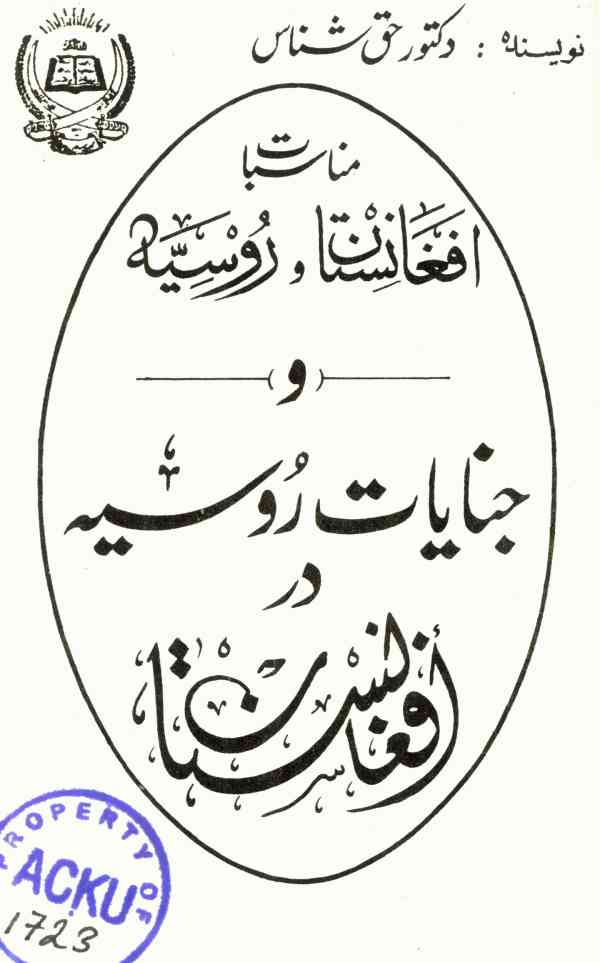 نویسنده : دکتور حق شناس
مناسبات
افغانستان و روسیه
و
جنایات روسیه
در
افغانستان
PROPERTY OF
ACKU
1723